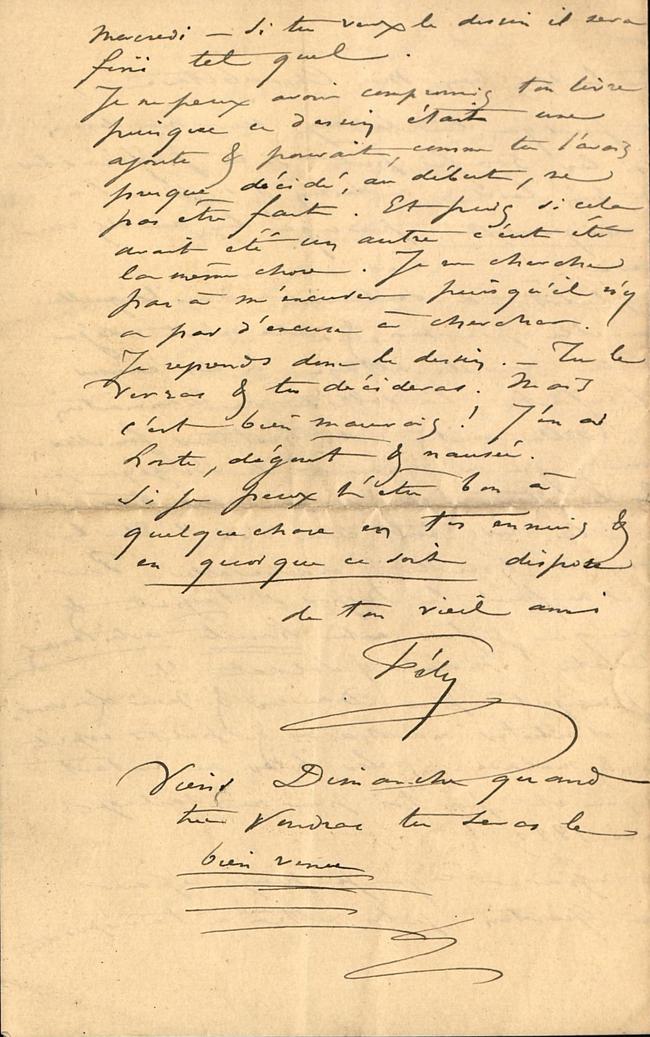 Mercredi — Si tu veux le dessin il sera
fini tel quel.
Je ne peux avoir compromis ton livre
puisque ce dessin était une
ajoute & pouvait, comme tu l'avais
presque décidé, au début, ne
pas être fait. Et puis si cela
avait été un autre c'eut été
la même chose. Je ne cherche
pas à m'excuser puisqu'il n'y
a pas d'excuse à chercher.
Je reprends donc le dessin. — Tu le
verras & tu décideras. Mais
c'est bien mauvais ! J'en ai
honte, dégout & nausée.
Si je peux t'être bon à
quelque chose en tes ennuis &
en quoique ce soit dispose
de ton vieil ami
Fély
Viens Dimanche quand
tu voudras tu seras le
bien venu